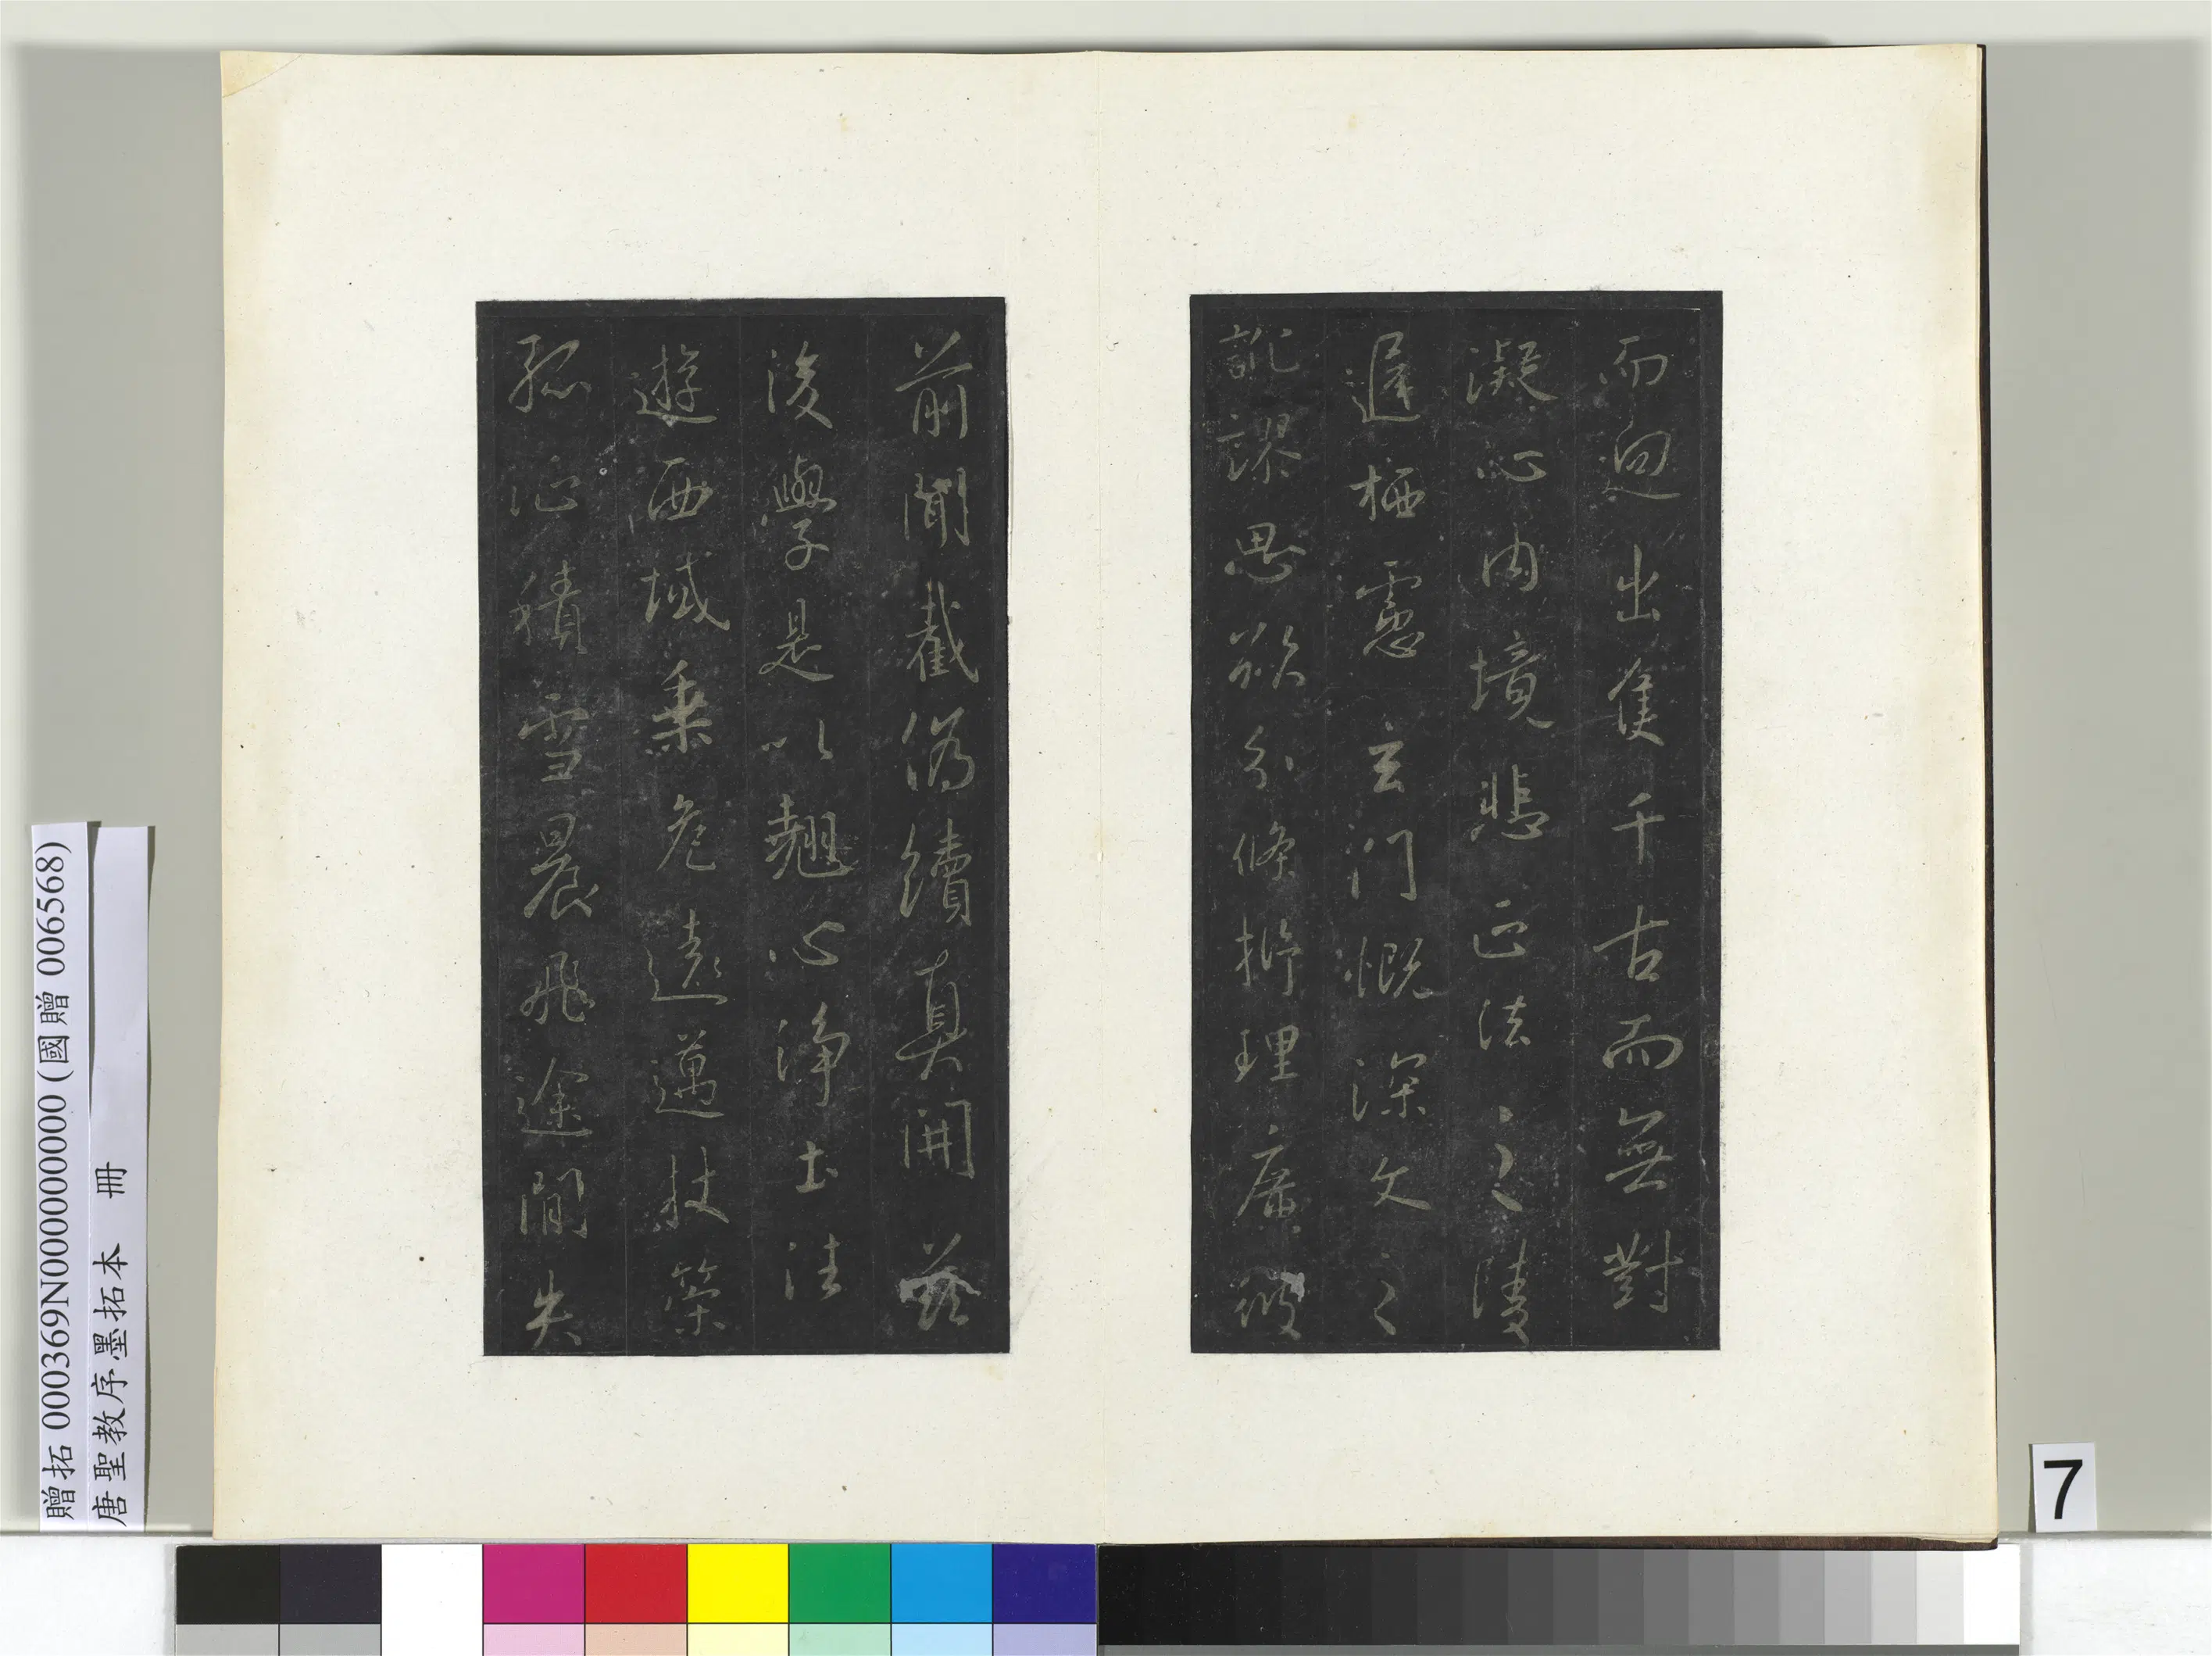 而迥出隻千古而無對
凝心內境悲正法之陵
遲栖慮玄門慨深文之
訛謬思欲分條析理廣彼
前聞截偽續真開茲
後學是以翹心淨土法
遊西域乘危遠邁杖策
孤征積雪晨飛途閒失
贈拓 000369N000000000 (國贈 006568)
唐聖教序墨拓本 冊
7